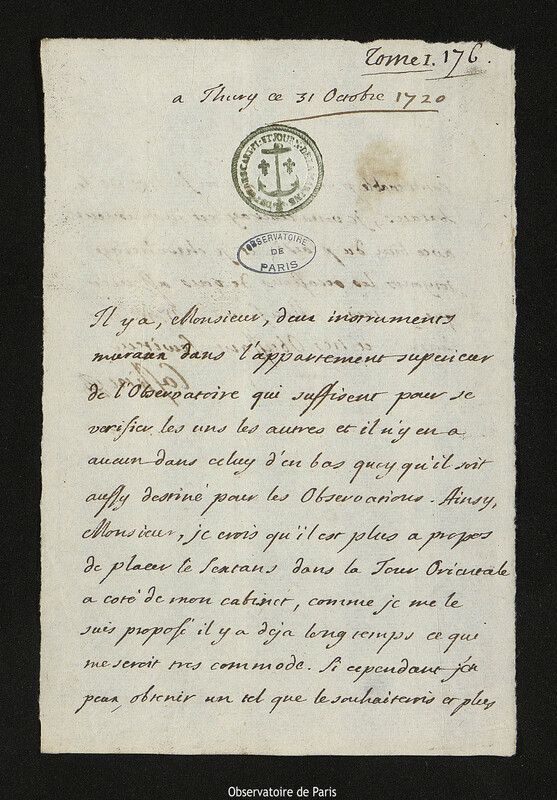 Tome I. 176.
a Thury ce 31 Octobre 1720
OBSERVATOIRE
DE
PARIS
Il y a, Monsieur, deux instruments
muraux dans l'appartement superieur
de l'Observatoire qui suffisent pour se
verifier les uns les autres et il n'y en a
aucun dans celuy d'en bas quoy qu'il soit
aussy destiné pour les Observations. Ainsy,
Monsieur, je crois qu'il est plus a propos
de placer le Sextans dans la Tour Orientale
a coté de mon cabinet, comme je me le
suis proposé il y a déja longtemps ce qui
me seroit tres commode. Si cependant j'en
peux, obtenir un tel que le souhaiterois et plus
Observatoire de Paris